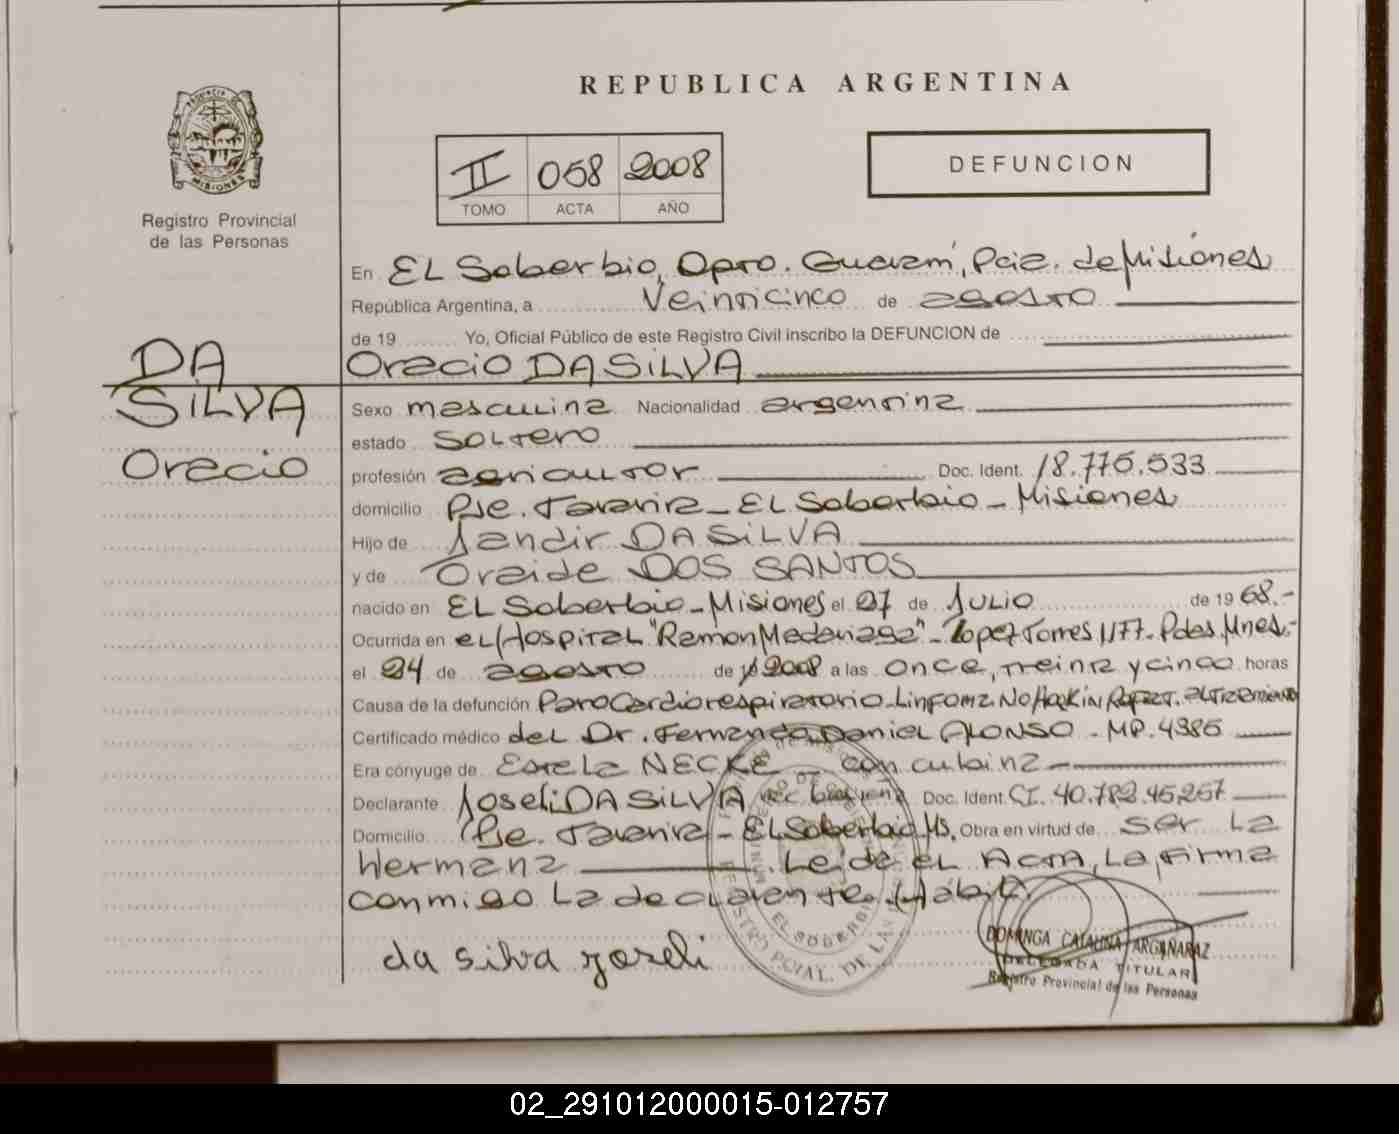 REPUBLICA ARGENTINA
PROVINCIA DE
MISIONES
Registro Provincial
de las Personas
II 058 2008
TOMO ACTA AÑO
DEFUNCION
En EL Soberbio, Dpto. Guaraní, Pcia. de Misiones
República Argentina, a veinticinco de agosto
de 19 Yo, Oficial Público de este Registro Civil inscribo la DEFUNCION de
DA
SILVA
Oracio
Oracio DA SILVA
Sexo masculina Nacionalidad argentina
estado soltero
profesión agricultor Doc. Ident. 18.775.533
domicilio Pje. Tararira - EL Soberbio - Misiones
Hijo de Jandir DA SILVA
y de Oraide DOS SANTOS
nacido en EL Soberbio - Misiones el 27 de JULIO de 19 68.-
Ocurrida en eL Hospital "Ramon Madariaga" - Lopez Torres 1177 - Pdas. Mnes.-
el 24 de agosto de 2008 a las once, treinta y cinco horas
Causa de la defunción Paro Cardiorespiratorio - Linfoma No Hockin
Certificado médico del Dr. Fernando Daniel ALONSO - MP. 4385
Era cónyuge de Estela NECKE - concubina
Declarante Joseli DA SILVA Doc. Ident. CI. 40.782.45,257
Domicilio Pje. Tararira - EL Soberbio Ms. Obra en virtud de ser la
hermana . Leída el Acta, la firma
conmigo la declarante. Hábil
da silva yoseli
EL SOBERBIO
REGISTRO PCIAL. DE LAS
DOMINGA CATALINA ARGAÑARAZ
DELEGADA TITULAR
Registro Provincial de las Personas
02_291012000015-012757